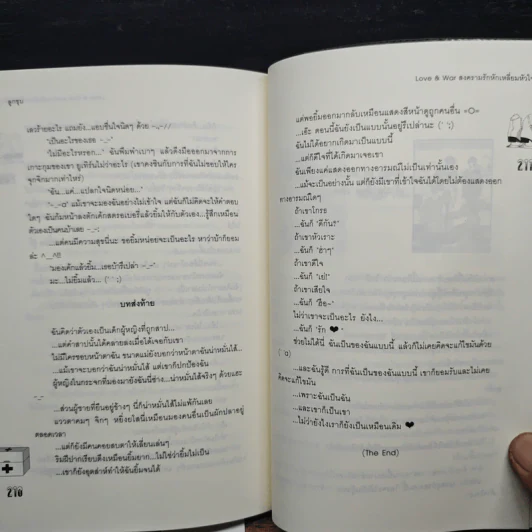 ลูกชุบ
เลวร้ายอะไร แถมยัง...แอบชื่นใจนิดๆ ด้วย -_-//
"เป็นอะไรของเธอ -_-"
"ไม่มีอะไรหรอก..." ฉันพึมพำเบาๆ แล้วดึงมือออกมาจากการ
เกาะกุมของเขา ยูเทิร์นไม่ว่าอะไร (เขาคงชินกับการที่ฉันไม่ชอบให้ใคร
จุกจิกมากเท่าไหร่)
"ฉัน...แค่...แปลกใจนิดหน่อย..."
"-_-a" แม้เขาจะมองฉันอย่างไม่เข้าใจ แต่ฉันก็ไม่คิดจะให้คำตอบ
ใดๆ ฉันก้มหน้าลงตักเค้กสตรอเบอรี่แล้วยิ้มให้กับตัวเอง...รู้สึกเหมือน
ตัวเองเป็นคนบ้าเลย -_-;
...แต่คนมีความสุขนี่นะ รอยยิ้มหน่อยจะเป็นอะไร หาว่าบ้าก็ยอม
ล่ะ ^__^!!
"มองเค้กแล้วยิ้ม...เธอบ้ารึเปล่า -_-"
มะ...ไม่ยิ้มแล้ว... (` ´;)
บทส่งท้าย
ฉันคิดว่าตัวเองเป็นเด็กผู้หญิงที่ถูกสาป...
...แต่คำสาปนั้นได้คลายลงเมื่อได้เจอกับเขา
ไม่มีใครชอบหน้าตาฉัน ขนาดแม่ยังบอกว่าหน้าตาฉันน่าหมั่นไส้...
...แม้เขาจะบอกว่าฉันน่าหมั่นไส้ แต่เขาก็ปกป้องฉัน
ผู้หญิงในกระจกที่มองมายังฉันนี่ช่าง...น่าหมั่นไส้จริงๆ ด้วยแฮะ
-_-
...ส่วนผู้ชายที่ยืนอยู่ข้างๆ นี่ก็น่าหมั่นไส้ไม่แพ้กันเลย
แววตาคมๆ จิกๆ หยิ่งยโสนี่เหมือนมองคนอื่นเป็นผักปลาอยู่
ตลอดเวลา
...แต่ก็ยังมีคนคอยสบตาให้เลี่ยนเล่นๆ
ริมฝีปากเรียบตึงเหมือนยิ้มยาก...ไม่ใช่ว่ายิ้มไม่เป็น
...เขาก็อุตส่าห์ทำให้ฉันยิ้มจนได้
210
Love & War สงครามรักหักเหลี่ยมหัวใจ
แต่พอยิ้มออกมากลับเหมือนแสดงสีหน้าดูถูกคนอื่น =O=
...เฮ้ะ ตอนนี้ฉันยังเป็นแบบนั้นอยู่รึเปล่านะ (` ´;)
ฉันไม่ได้อยากเกิดมาเป็นแบบนี้
...แต่ก็ดีใจที่ได้เกิดมาเจอเขา
ฉันเพียงแค่แสดงออกทางอารมณ์ไม่เป็นเท่านั้นเอง
...แม้จะเป็นอย่างนั้น แต่ก็ยังมีเขาที่เข้าใจฉันได้โดยไม่ต้องแสดงออก
ทางอารมณ์ใดๆ
ถ้าเขาโกรธ
...ฉันก็ "ดีกัน!"
ถ้าเขาหัวเราะ
...ฉันก็ "ฮ่าๆ"
ถ้าเขาดีใจ
...ฉันก็ "เย้!"
ถ้าเขาเสียใจ
...ฉันก็ "ฮือ~"
ไม่ว่าเขาจะเป็นอะไร ยังไง...
...ฉันก็ "รัก ♥"
ช่วยไม่ได้นี่ ฉันเป็นของฉันแบบนี้ แล้วก็ไม่เคยคิดจะแก้ไขมันด้วย
...และฉันรู้ดี การที่ฉันเป็นของฉันแบบนี้ เขาก็ยอมรับและไม่เคย
คิดจะแก้ไขมัน
...เพราะฉันเป็นฉัน
...และเขาก็เป็นเขา
...ไม่ว่ายังไงเราก็ยังเป็นเหมือนเดิม ♥
(The End)